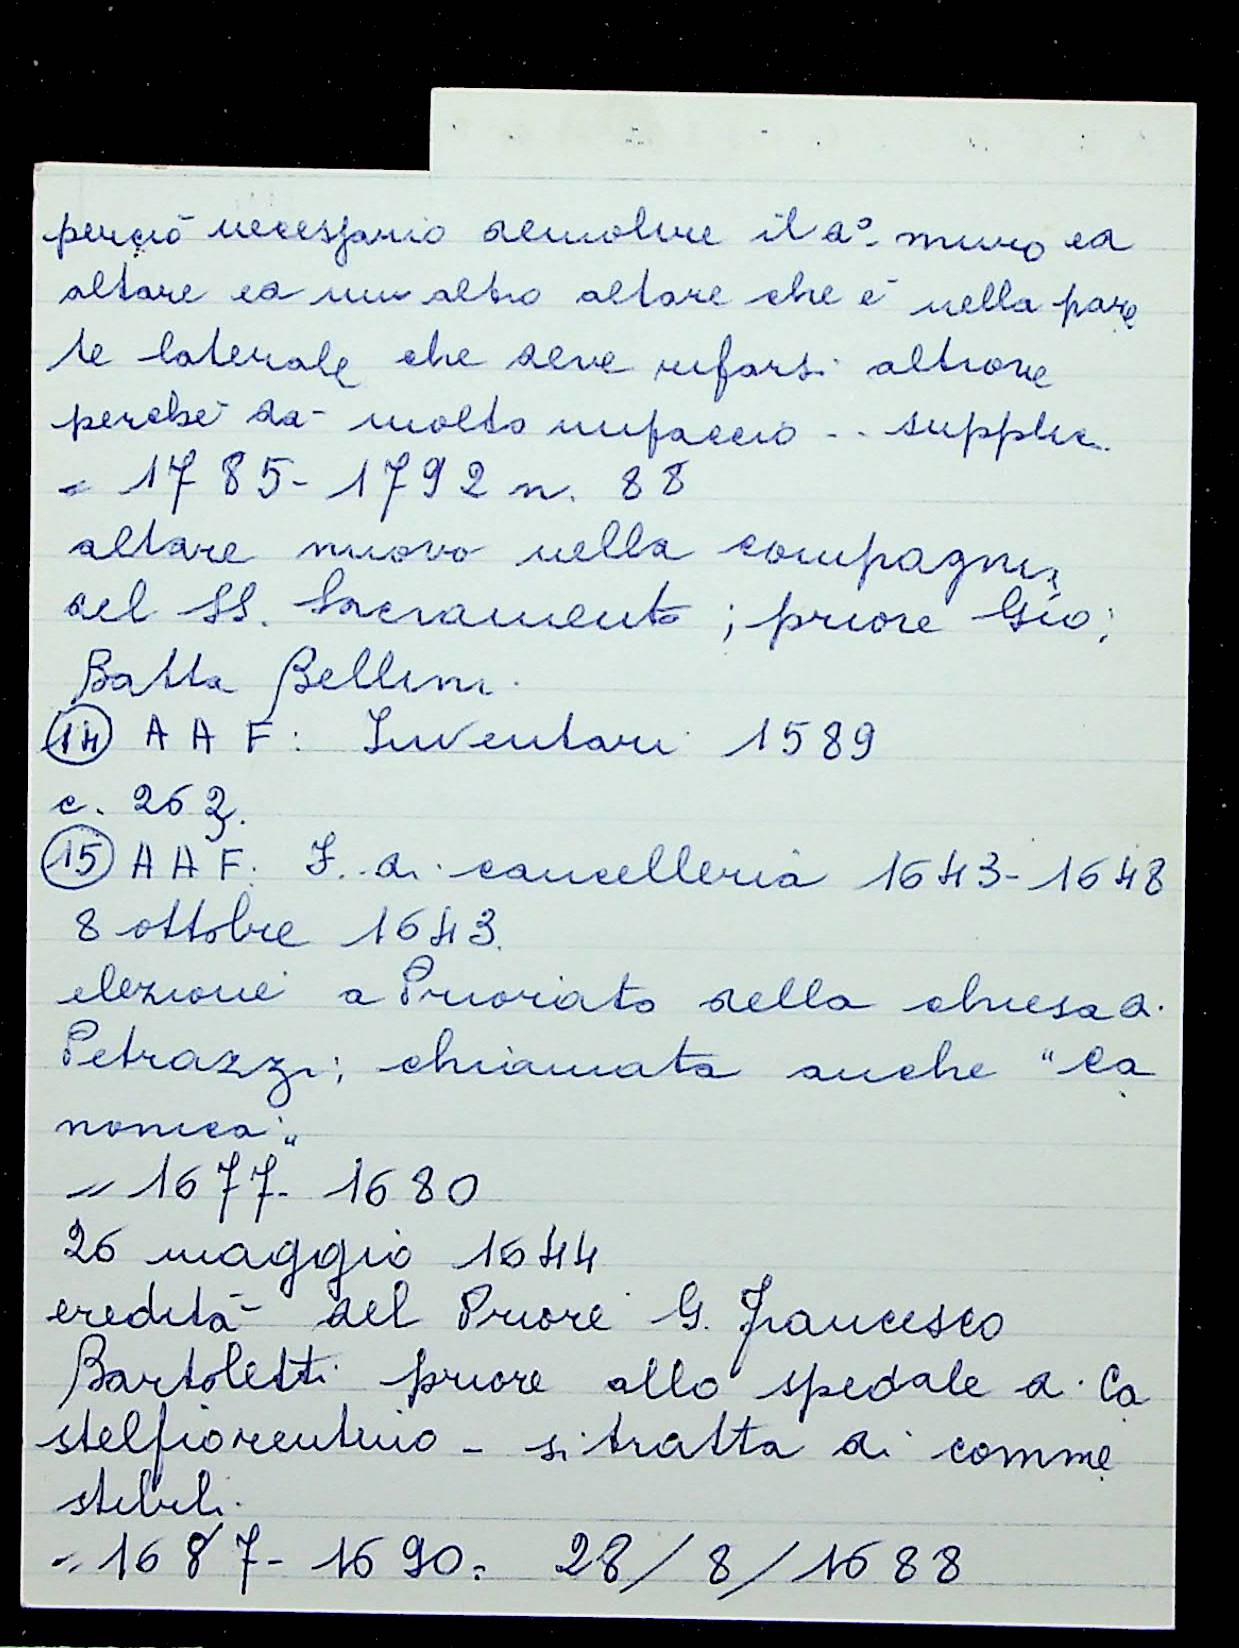 perciò necessario demolire il do. muro ed
altare ed un altro altare che è nella pare
te laterale che deve rifarsi altrove
perchè dà molto impaccio -- supplic.
" 1785-1792 n. 88
altare nuovo nella compagnia
del SS. Sacramento; priore Gio:
Batta Bellini.
(14) A A F: Inventari 1589
c. 262.
(15) A A F. F. di cancelleria 1643-1648
8 ottobre 1643.
elezione a Priorato della chiesa di
Petrazzi; chiamata anche "Ca
nonica"
" 1677-1680
26 maggio 1644
eredità del Priore G. Francesco
Bartoletti priore allo spedale di Ca
stelfiorentino - si tratta di comme
stibili.
" 1687-1690: 28/8/1688